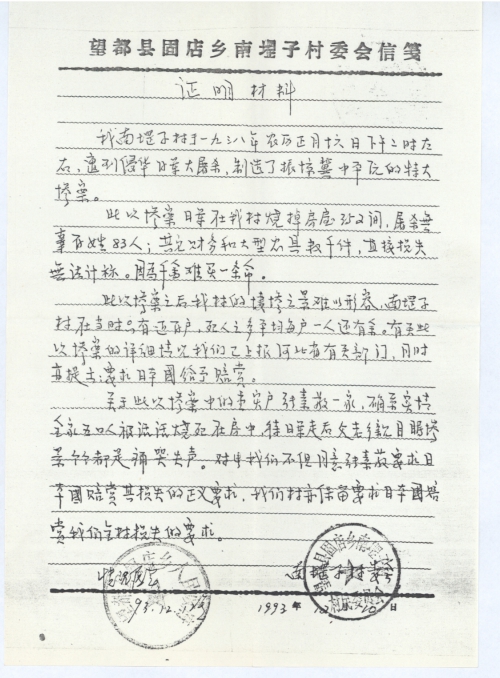 望都县固店乡南堤子村委会信笺
证明材料
我南堤子村于一九三八年农历正月十六日下午二时左
右，遭到侵华日军大屠杀，制造了振惊冀中平原的特大
惨案。
此次惨案日军在我村烧掉房屋352间，屠杀无
辜百姓83人；其它财务和大型农具数千件，直接损失
无法计称。因千金难买一条命。
此次惨案之后我村的凄惨之景难以形容，南堤子
村在当时只有近百户，死人之多平均每户一人还有余。有关此
次惨案的详细情况我们已上报河北省有关部门，同时
亦提出要求日本国给予赔赏。
关于此次惨案中的重灾户张素敬一家，确系实情
全家五口人被活活烧死在房中，待日军走后父老乡亲目睹惨
景个个都是痛哭失声。对此我们不但同意张素敬要求日
本国赔赏其损失的正义要求，我们村亦保留要求日本国赔
赏我们全村损失的要求。
情况属实
93.12.
南堤子村委会
1993年12月10日